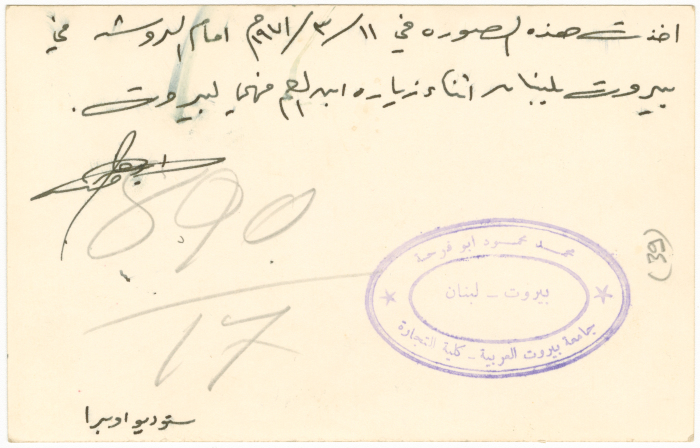 اخذت هذه الصوره في ١١/٣/١٩٧١م امام الروشه في
بيروت بلبنان اثناء زياره ابن العم فهمي لبيروت.
890
17
(39)
محمد محمود ابو فرحة
بيروت - لبنان
جامعة بيروت العربية - كلية التجارة
ستوديو اوبرا